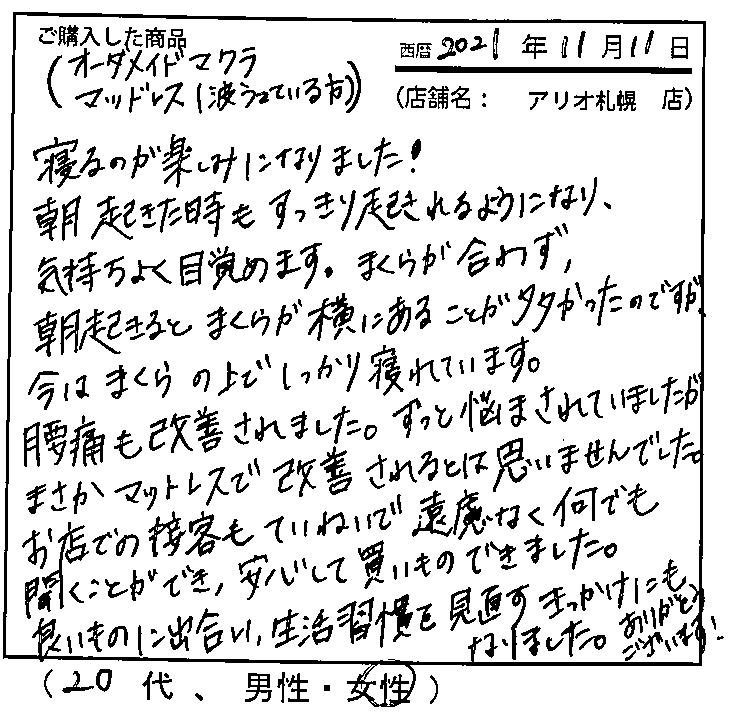 ご購入した商品
西暦 2021 年 11 月 11 日
(オーダメイドマクラ
マッドレス(波うっている方))
(店舗名： アリオ札幌 店)
寝るのが楽しみになりました!
朝起きた時もすっきり起きれるようになり、
気持ちよく目覚めます。まくらが合わず,
朝起きるとまくらが横にあることが多かったのですが、
今はまくらの上でしっかり寝れています。
腰痛も改善されました。ずっと悩まされていましたが
まさかマットレスで改善されるとは思いませんでした。
お店での接客もていねいで遠慮なく何でも
聞くことができ,安心して買いものできました。
良いものに出合い,生活習慣を見直すきっかけにも
なりました。ありがとう
ございます!
(20 代、男性・女性)